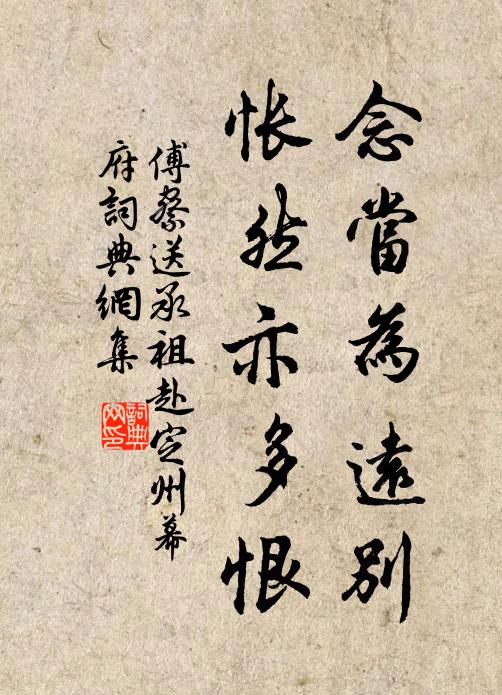 念當為遠別
悵然亦多恨
傅察送承祖赴定州幕
府詞典網集
詞典
网印